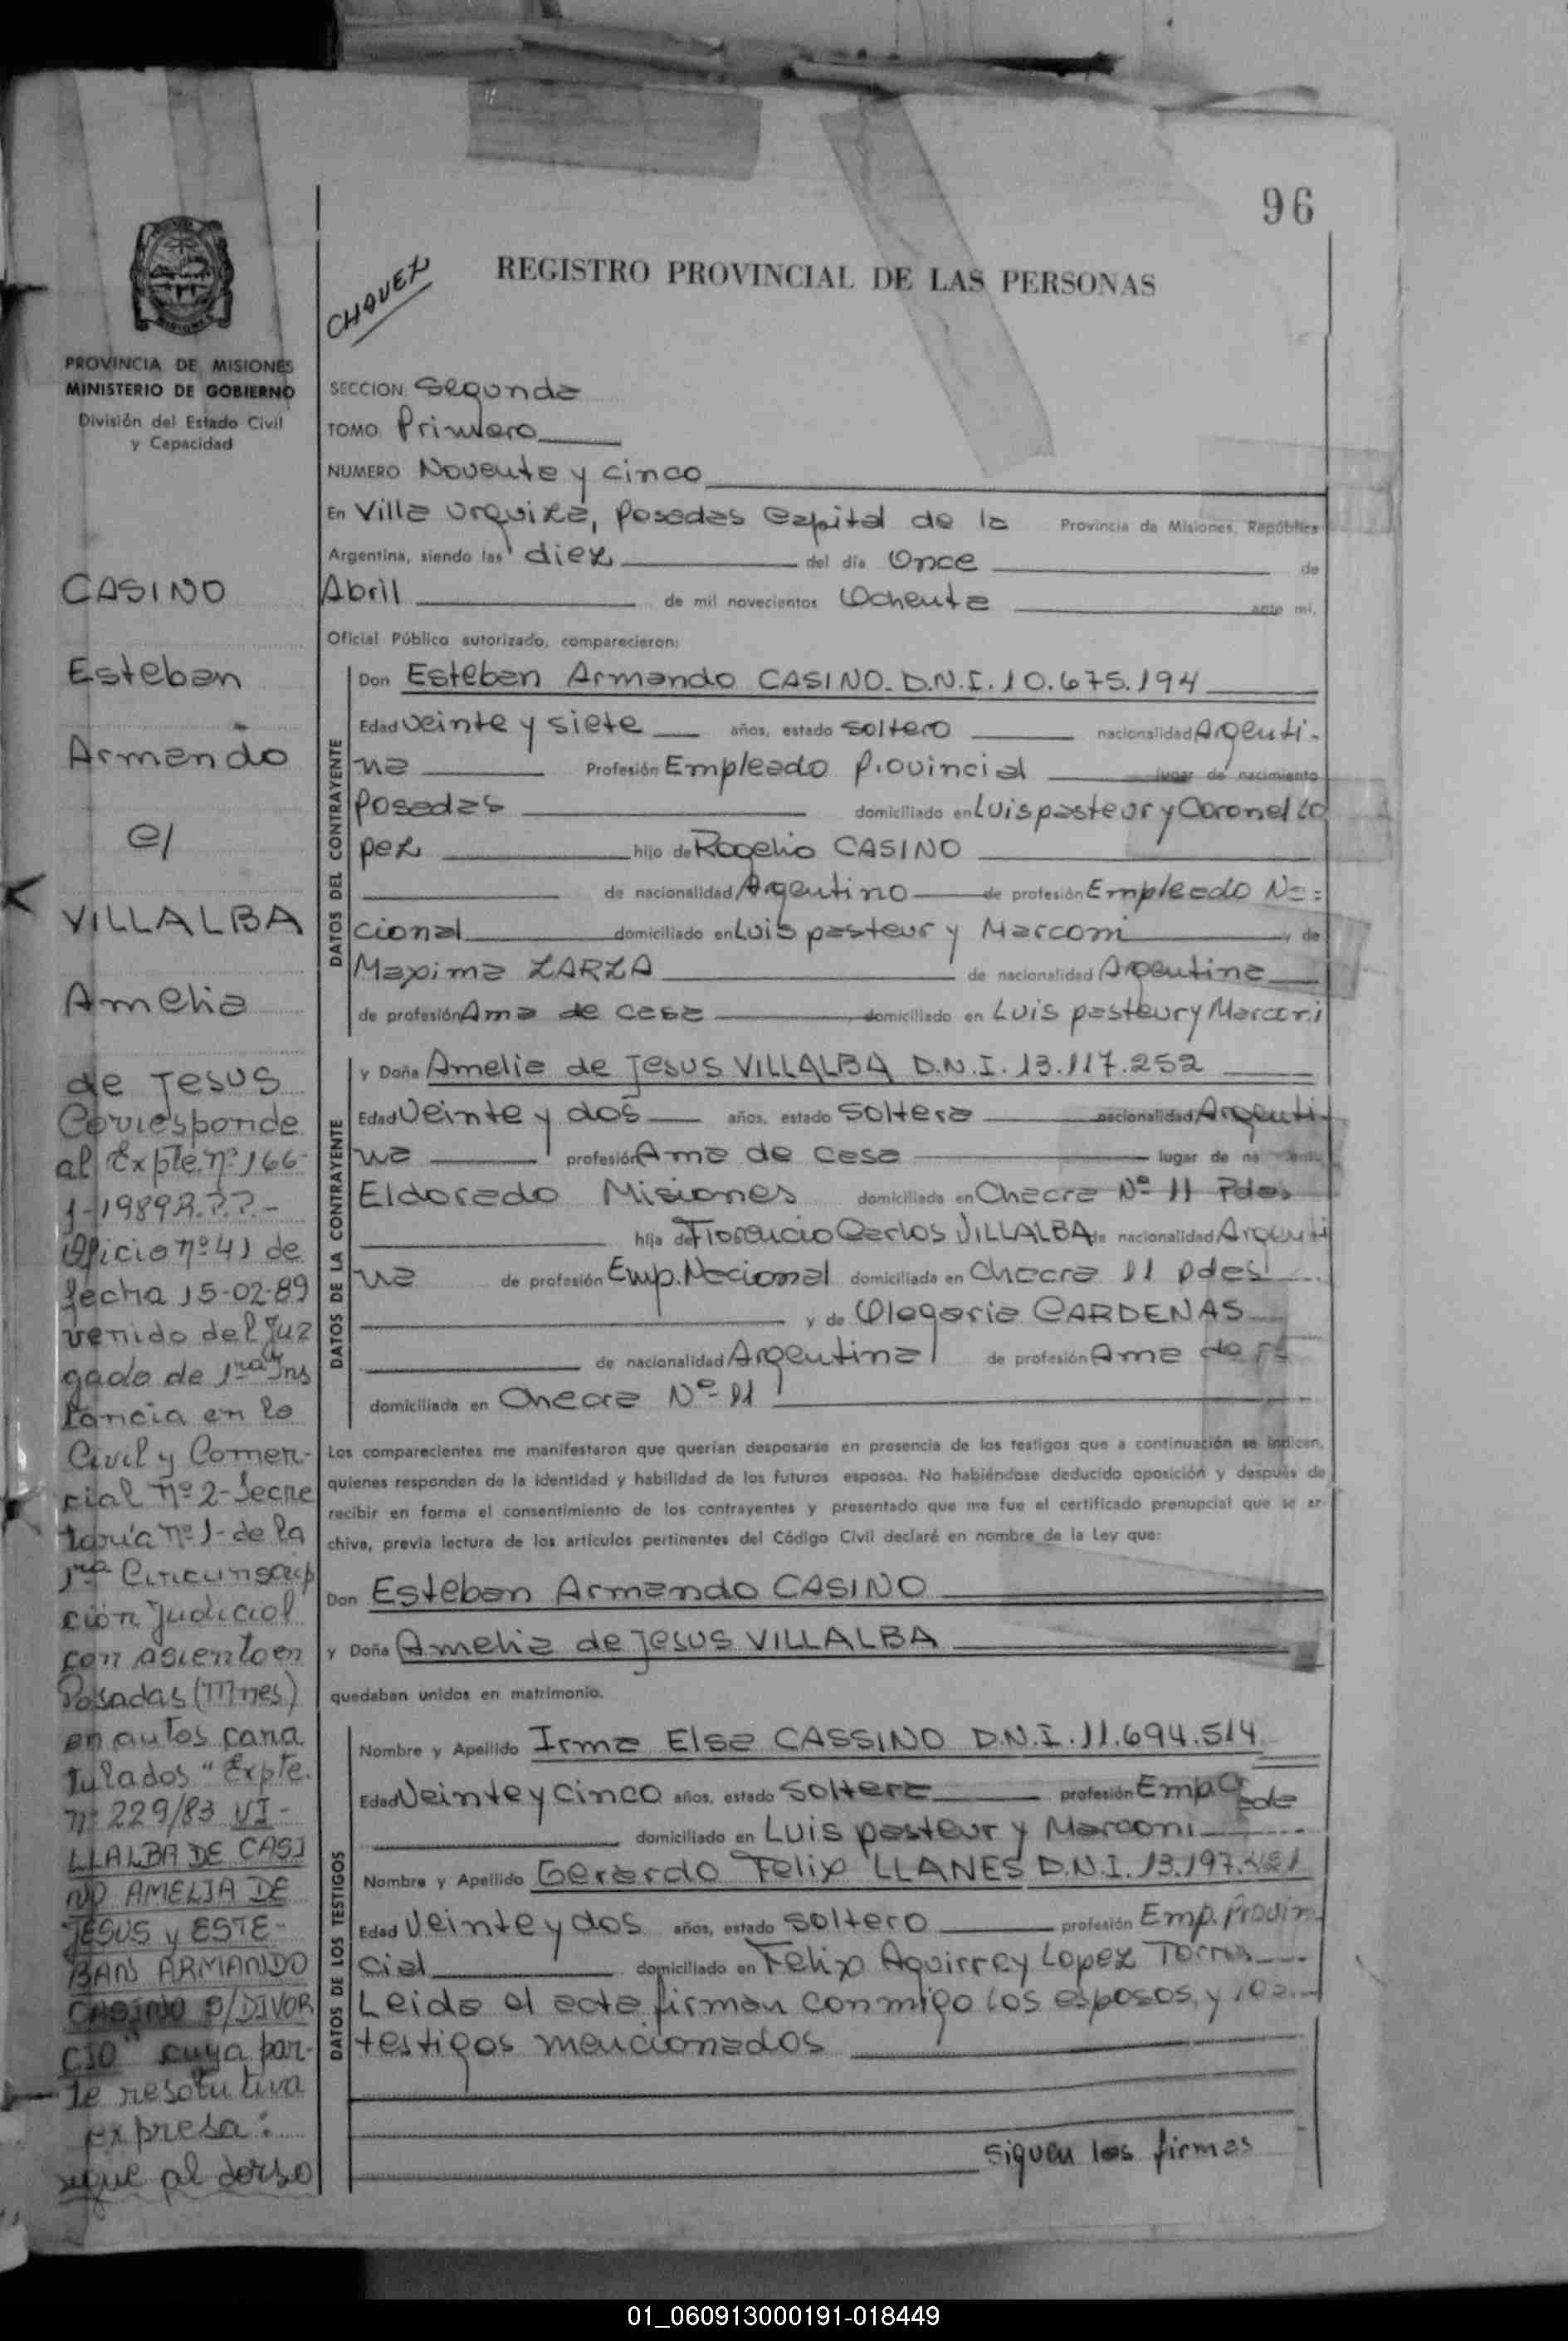 96
REGISTRO PROVINCIAL DE LAS PERSONAS
CHAVEZ
MISIONES
PROVINCIA DE MISIONES
MINISTERIO DE GOBIERNO
División del Estado Civil
y Capacidad
CASINO
Esteban
Armando
c/
VILLALBA
Amelia
de Jesus
Corresponde
al Expte. nº 166-
1-1989
Oficio nº 41 de
fecha 15-02-89
venido del Juz
gado de 1ra Ins
tancia en lo
Civil y Comer-
cial nº 2-Secre
taría nº 1-de la
1ra Circunscrip
ción Judicial
con asiento en
Posadas (Mnes)
en autos cara
tulados "Expte.
nº 229/83 VI-
LLALBA DE CASI
NO AMELIA DE
JESUS y ESTE-
BAN ARMANDO
CASINO S/DIVOR
CIO" cuya par-
te resolutiva
expresa:
sigue al dorso
SECCION Segunda
TOMO Primero
NUMERO Noventa y cinco
En Villa Urquiza, Posadas Capital de la Provincia de Misiones, República
Argentina, siendo las diez del día Once de
Abril de mil novecientos Ochenta ante mí,
Oficial Público autorizado, comparecieron:
DATOS DEL CONTRAYENTE
Don Esteban Armando CASINO D.N.I. 10.675.194
Edad veinte y siete años, estado soltero nacionalidad Argenti-
na Profesión Empleado Provincial lugar de nacimiento
Posadas domiciliado en Luis pasteur y Coronel Lo
pez hijo de Rogelio CASINO
de nacionalidad Argentino de profesión Empleado Na=
cional domiciliado en Luis pasteur y Marconi y de
Maxima ZARZA de nacionalidad Argentina
de profesión Ama de casa domiciliado en Luis pasteur y Marconi
DATOS DE LA CONTRAYENTE
y Doña Amelia de Jesus VILLALBA D.N.I. 13.117.252
Edad Veinte y dos años, estado Soltera nacionalidad Argenti-
na profesión Ama de casa lugar de
Eldorado Misiones domiciliada en Chacra Nº 11 Pdas
hija de Florencio Carlos VILLALBA de nacionalidad Argenti
na de profesión Emp. Nacional domiciliada en Chacra 11 Pdas
y de Olegaria CARDENAS
de nacionalidad Argentina de profesión Ama de
domiciliada en Chacra Nº 11
Los comparecientes me manifestaron que querían desposarse en presencia de los testigos que a continuación se indican,
quienes responden de la identidad y habilidad de los futuros esposos. No habiéndose deducido oposición y después de
recibir en forma el consentimiento de los contrayentes y presentado que me fue el certificado prenupcial que se ar
chiva, previa lectura de los artículos pertinentes del Código Civil declaré en nombre de la Ley que:
Don Esteban Armando CASINO
y Doña Amelia de Jesus VILLALBA
quedaban unidos en matrimonio.
DATOS DE LOS TESTIGOS
Nombre y Apellido Irma Elsa CASSINO D.N.I. 11.694.514
Edad Veinte y cinco años, estado Soltera profesión
domiciliado en Luis pasteur y Marconi
Nombre y Apellido Gerardo Felix LLANES D.N.I.
Edad Veinte y dos años, estado soltero profesión Emp. Provin
cial domiciliado en Felix Aguirre y Lopez Torres
Leida el acta firman conmigo los esposos y los
testigos mencionados
siguen las firmas
01_060913000191-018449